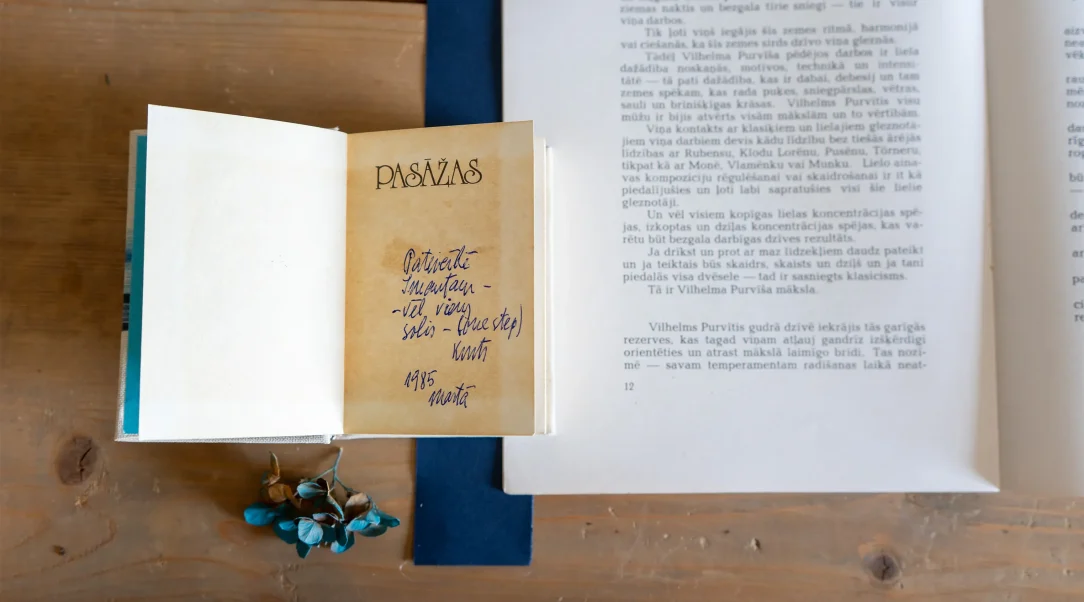 PASĀŽAS
Pateicībā
Imantam –
– vēl viens
solis – (one step)
Knuts
1985
martā
ziemas naktis un bezgala tīrie sniegi — tie ir visur
viņa darbos.
Tik ļoti viņš iegājis šīs zemes ritmā, harmonijā
vai ciešanās, ka šīs zemes sirds dzīvo viņa gleznās.
Tādēļ Vilhelma Purvīša pēdējos darbos ir liela
dažādība noskaņās, motīvos, tehnikā un intensi-
tātē — tā pati dažādība, kas ir dabai, debesīj un tam
zemes spēkam, kas rada puķes, sniegpārslas, vētras,
sauli un brīnišķīgas krāsas. Vilhelms Purvītis visu
mūžu ir bijis atvērts visām mākslām un to vērtībām.
Viņa kontakts ar klasiķiem un lielajiem gleznotā-
jiem viņa darbiem devis kādu līdzību bez tiešās ārējās
līdzības ar Rubensu, Klodu Lorēnu, Pusēnu, Tērneru,
tikpat kā ar Monē, Vlamēnku vai Munku. Lielo aina-
vas kompozīciju rēgulēšanai vai skaidrošanai ir it kā
piedalījušies un ļoti labi sapratušies visi šie lielie
gleznotāji.
Un vēl visiem kopīgas lielas koncentrācijas spē-
jas, izkoptas un dziļas koncentrācijas spējas, kas va-
rētu būt bezgala darbīgas dzīves rezultāts.
Ja drīkst un prot ar maz līdzekļiem daudz pateikt
un ja teiktais būs skaidrs, skaists un dziļš un ja tanī
piedalās visa dvēsele — tad ir sasniegts klasicisms.
Tā ir Vilhelma Purvīša māksla.
Vilhelms Purvītis gudrā dzīvē iekrājis tās garīgās
rezerves, kas tagad viņam atļauj gandrīz izšķērdīgi
orientēties un atrast mākslā laimīgo brīdi. Tas nozī-
mē — savam temperamentam radīšanas laikā neat-
12